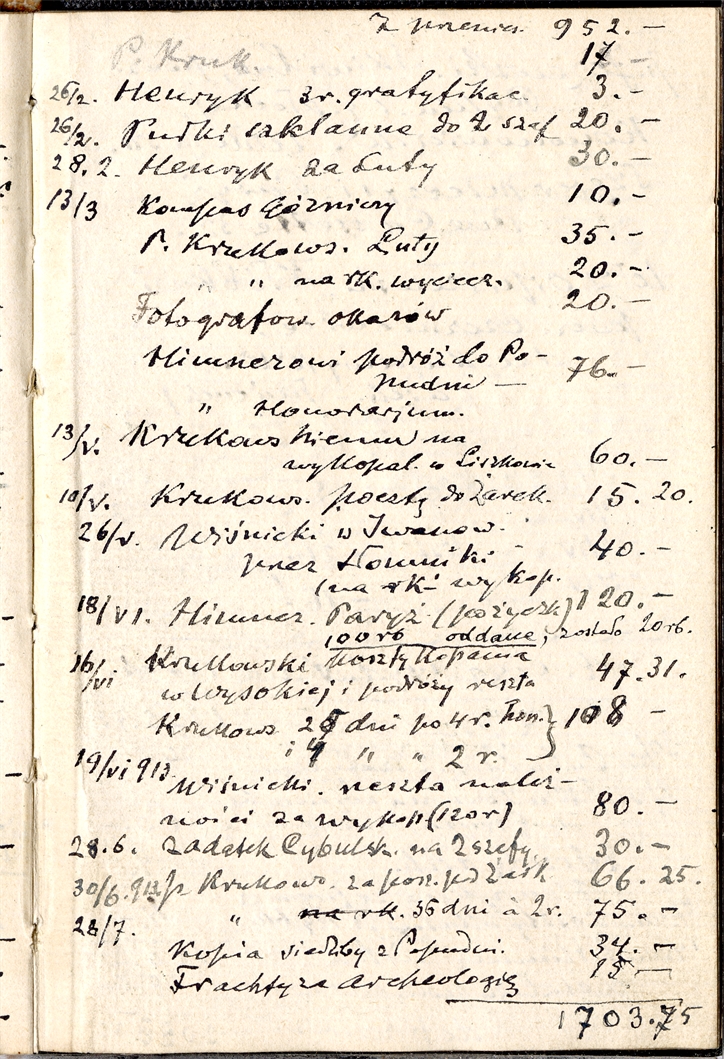 Z przenies. 952.—
P. Kruk. 17
26/2. Henryk 3 r. gratyfikac. 3.—
26/2. Pudła szklanne do szaf 20.—
28.2. Henryk za Luty 30.—
13/3 Kompas Górniczy 10.—
P. Krukows. Luty 35.—
" " na rk. wyciecz. 20.—
Fotografow. okazów 20.—
Himnerowi podróż do Po- 76.—
pudni —
" Honorarjum.
13/V. Krukowskiemu na
wykopal. w 60.—
10/V. Krukows. poczty do Żarek. 15.20.
26/V. Wiśnicki w Iwanow.
przez Słomniki 40.—
(na rk. wykop.
18/VI. Himner. Paryż (pożyczk) 120.—
100 rb oddane, zostało 20 rb.
16/VI Krukowski koszty kopania 47.31.
w Wysokiej i podróży reszta
Krukows 25 dni po 4 r. hon. } 108 —
i 4 " " 2 r.
19/VI 913 Wiśnicki. reszta należ-
ności za wykop (120r) 80.—
28.6. Zadatek Cybulsk. na 2 szafy 30.—
30/6.913 p Krukows. za 66.25.
28/7. " na rk. 36 dni à 2r. 75.—
Kopia siedliby z Popudni. 34.—
Frachty za Archeologię 15—
1703.75